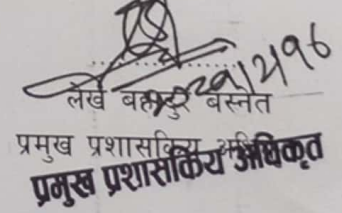 लेख बहादुर बस्नेत
प्रमुख प्रशासकिय अधिकृत
प्रमुख प्रशासकिय अधिकृत